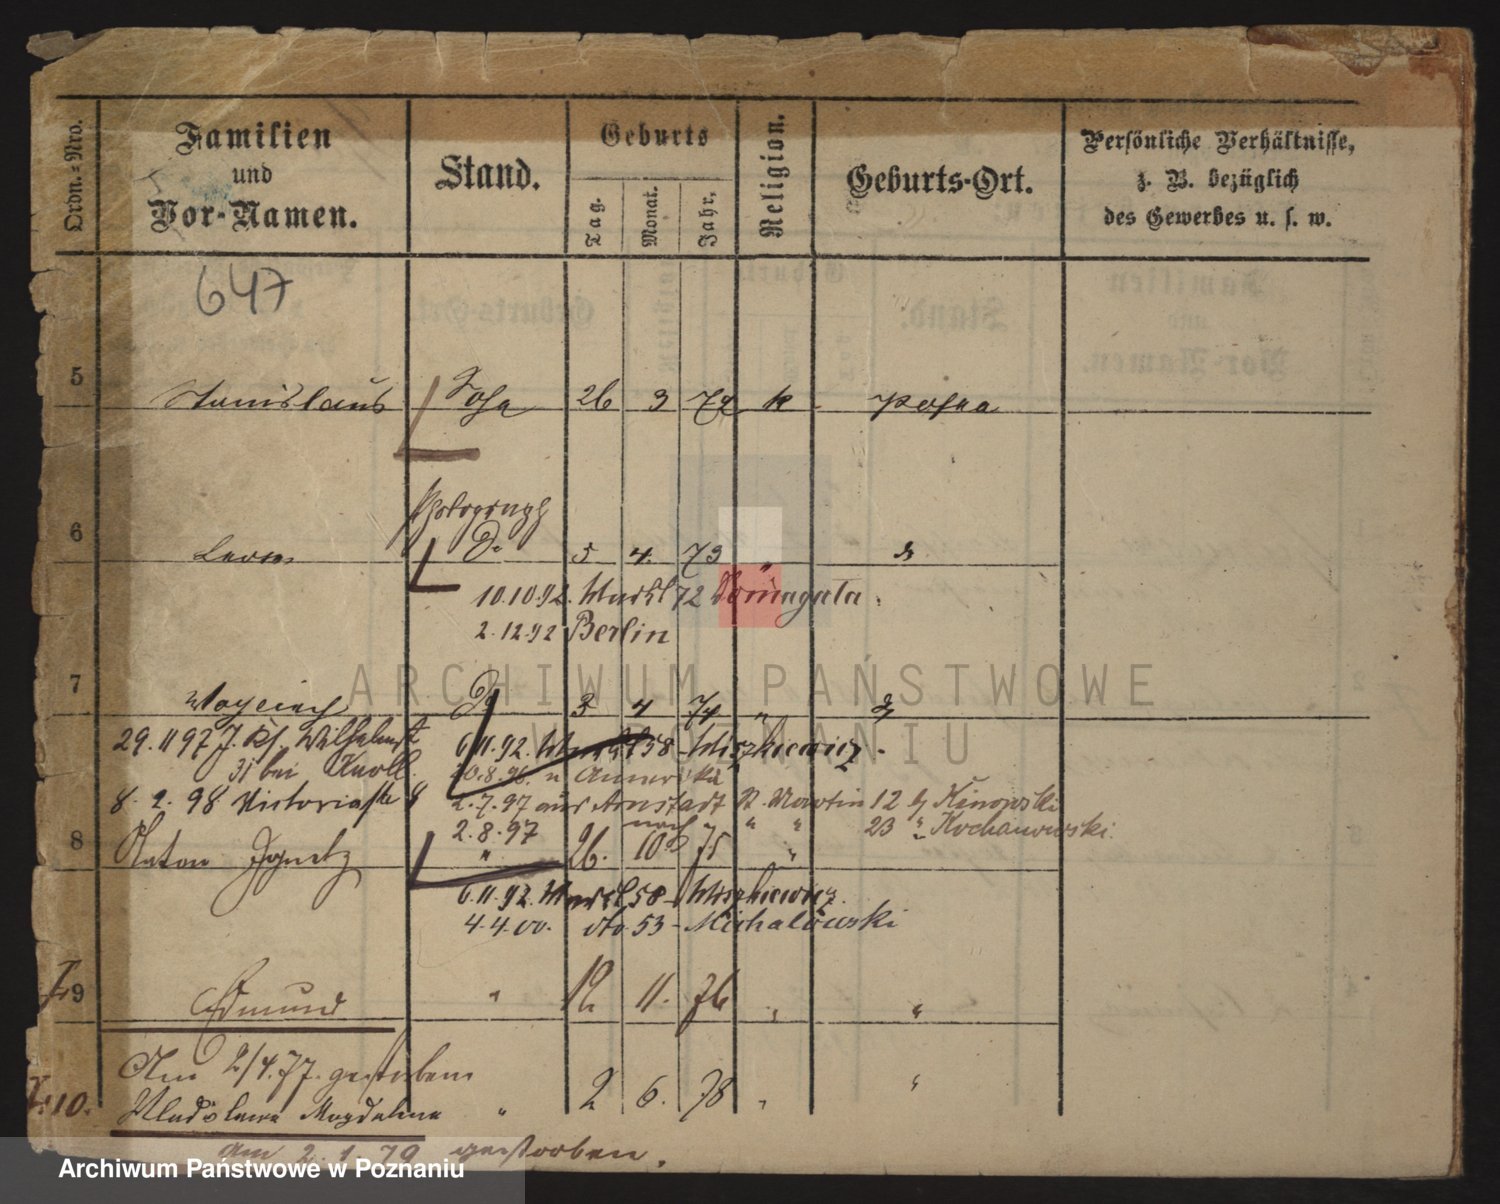 Ordn.-Nro.
Familien
und
Vor-Namen.
Stand.
Geburts
Tag.
Monat.
Jahr.
Religion.
Geburts-Ort.
Persönliche Verhältnisse,
z. B. bezüglich
des Gewerbes u. s. w.
647
5 Stanislaus Sohn 26 3 72 k Posen
Photograph
6 Leon Do 5 4. 73 "
10.10.92. 72
2.12.92 Berlin
7 Woyciech Do 3 4 74 "
29.11 97 J. 6.11.92. 58 - Wiszkiewicz.
31 bei Knoll. 20.8.96. n Amerika
8. 2. 98 Victoriastr 8 2.7.97 aus Arnstadt St. Martin 12 b/
2.8.97 nach " " 23 " Kochanowski.
8 Anton Ignatz " 26. 10 75 "
6.11.92. 58 - Wiszkiewicz.
4.4.00. dto 53 - Michalowski
9 Edmund " 12 11. 76 " "
Am 2/4.77. gestorben
10. Vladislawa Magdalena " 2 6. 78 " "
am 2. 1. 79 gestorben.
ARCHIWUM PAŃSTWOWE
W POZNANIU
Archiwum Państwowe w Poznaniu